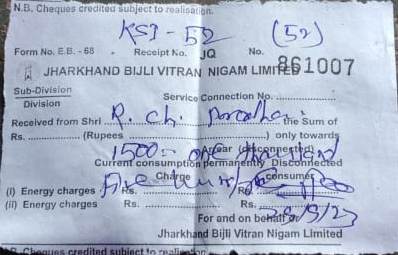 N.B. Cheques credited subject to realisation.
KSJ-52 (52)
Form No. E.B. - 68 Receipt No. JQ No. 861007
JHARKHAND BIJLI VITRAN NIGAM LIMITED
Sub-Division
Division
Service Connection No. ..................
Received from Shri R. Ch. the Sum of
Rs. .................. (Rupees ..................) only towards
1500/- one thousand
Arrear (disconnected)
Current consumption permanently Disconnected
Five Charge consumer
(i) Energy charges Rs.
(ii) Energy charges Rs. .................. Rs.
For and on behalf of
Jharkhand Bijli Vitran Nigam Limited
N.B. Cheques credited subject to realisation